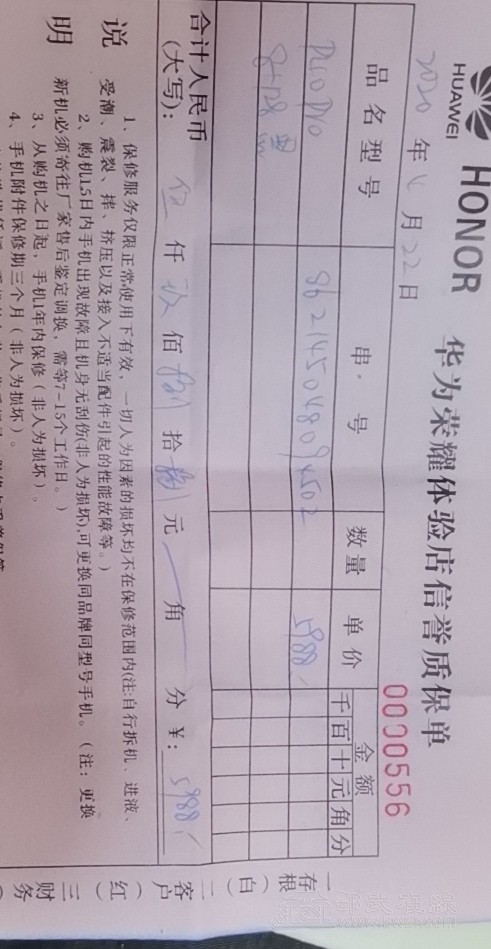 HUAWEI HONOR 华为荣耀体验店信誉质保单
2020年 月22日 0000556
品名型号 串号 数量 单价 金额
千百十元角分
5988
8+128
合计人民币
(大写): 伍仟玖佰捌拾捌元 角 分 ¥: 5988
说明
1、保修服务仅限正常使用下有效,一切人为因素的损坏均不在保修范围内(注:自行拆机、进液、
受潮、震裂、摔、挤压以及接入不适当配件引起的性能故障等。)
2、购机15日内手机出现故障且机身无刮伤(非人为损坏),可更换同品牌同型号手机。(注:更换
新机必须寄往厂家售后鉴定调换,需等7-15个工作日。)
3、从购机之日起,手机1年内保修(非人为损坏)。
4、手机附件保修期三个月(非人为损坏)。
一存根(白)二客户(红)三财务